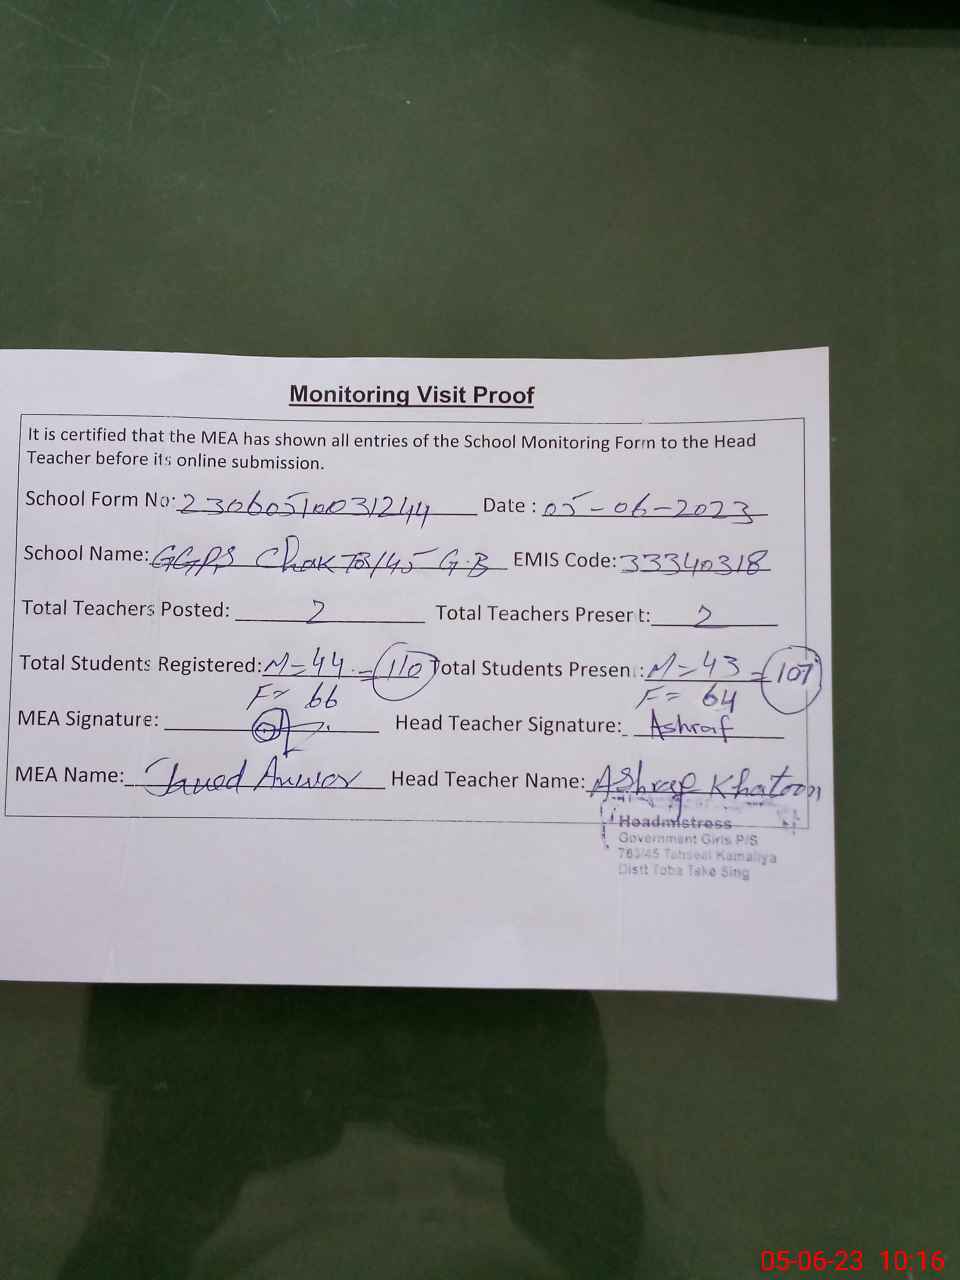 Monitoring Visit Proof
It is certified that the MEA has shown all entries of the School Monitoring Form to the Head
Teacher before its online submission.
School Form No: 23060510031244 Date : 05-06-2023
School Name: GGPS Chak 763/45 G.B EMIS Code: 33340318
Total Teachers Posted: 2 Total Teachers Present: 2
Total Students Registered: M=44 =110 Total Students Present: M=43 =107
F= 66 F= 64
MEA Signature: Head Teacher Signature: Ashraf
MEA Name: Javed Anwar Head Teacher Name: AShraf Khatoon
Headmistress
Government Girls P/S
763/45 Tahseel Kamaliya
Distt Toba Teke Sing
05-06-23 10:16